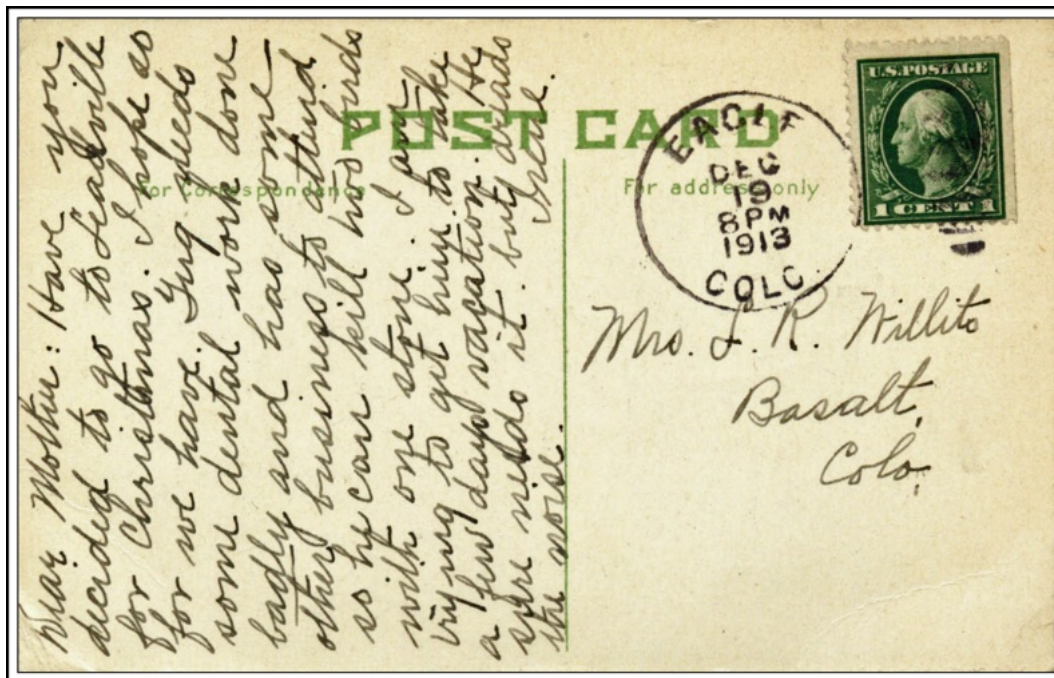 POST CARD
For Correspondence
For address only
U.S. POSTAGE
1 CENT 1
EAGLE
DEC
19
8 PM
1913
COLO.
Dear Mother: Have you
decided to go to Leadville
for Christmas. I hope so
for we have. needs
some dental work done
badly and has some
other business to attend
so he can kill two birds
with one stone. I am
trying to get him to take
a few days vacation. He
sure needs it but dreads
the noise.
Irene
Mrs. L. R. Willits
Basalt,
Colo.